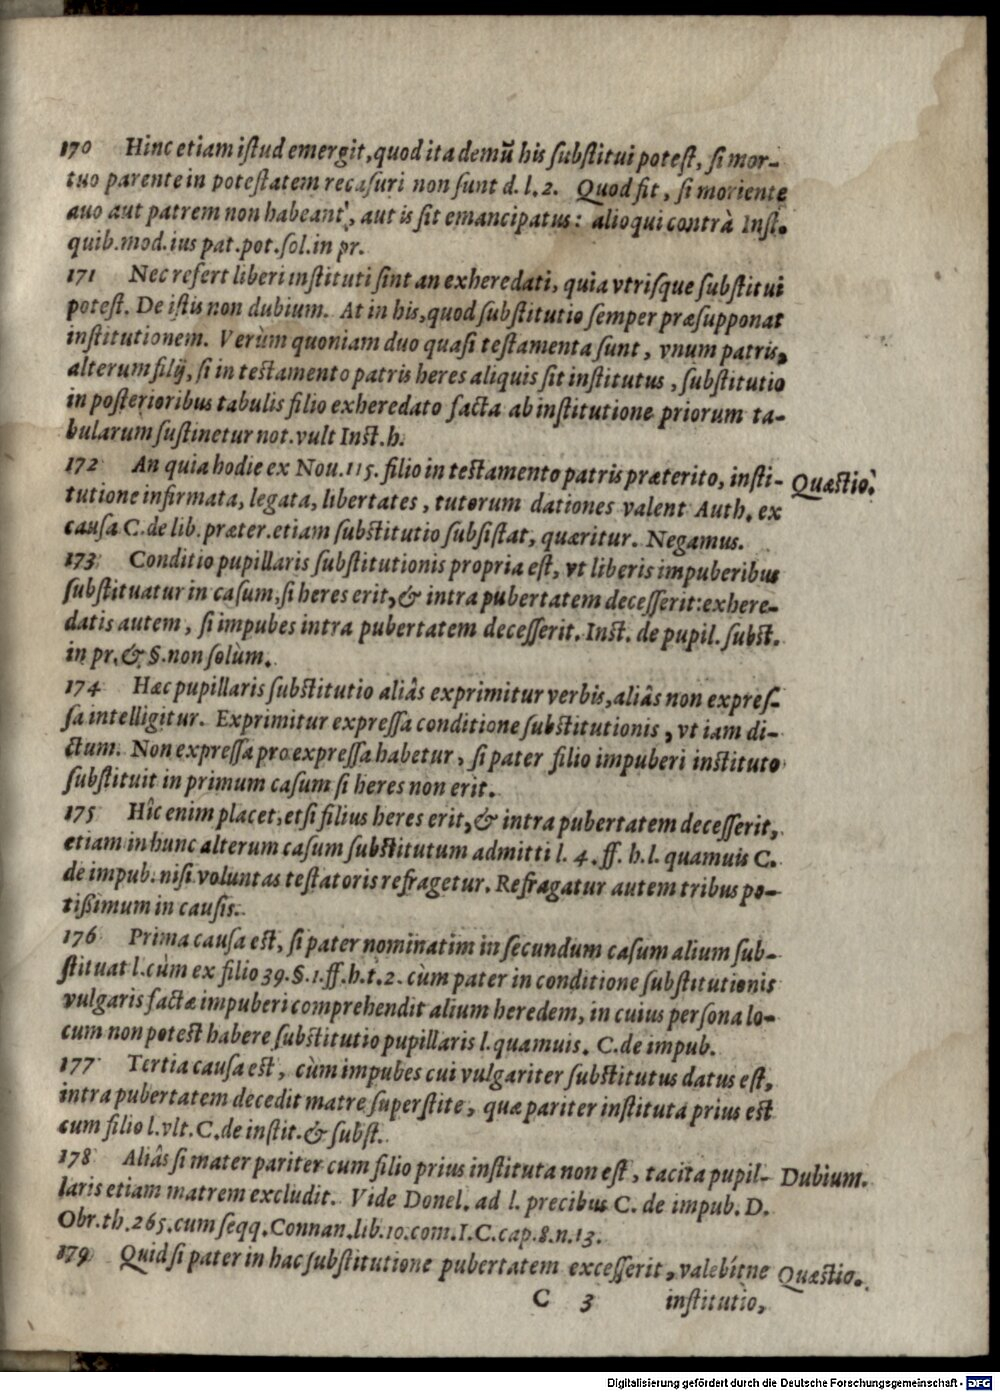 170 Hinc etiam istud emergit, quod ita demū his substitui potest, si mor-
tuo parente in potestatem recasuri non sunt d. l. 2. Quod fit, si moriente
auo aut patrem non habeant, aut is sit emancipatus: alioqui contrà Inst.
quib. mod. ius pat. pot. sol. in pr.
171 Nec refert liberi instituti sint an exheredati, quia vtrisque substitui
potest. De istis non dubium. At in his, quod substitutio semper præsupponat
institutionem. Verùm quoniam duo quasi testamenta sunt, vnum patris,
alterum filij, si in testamento patris heres aliquis sit institutus, substitutio
in posterioribus tabulis filio exheredato facta ab institutione priorum ta-
bularum sustinetur not. vult Inst. h.
172 An quia hodie ex Nou. 115. filio in testamento patris præterito, insti- Quæstio.
tutione infirmata, legata, libertates, tutorum dationes valent Auth. ex
causa C. de lib. præter. etiam substitutio subsistat, quæritur. Negamus.
173 Conditio pupillaris substitutionis propria est, vt liberis impuberibus
substituatur in casum, si heres erit, & intra pubertatem decesserit: exhere-
datis autem, si impubes intra pubertatem decesserit. Inst. de pupil. subst.
in pr. & §. non solùm.
174 Hæc pupillaris substitutio aliâs exprimitur verbis, aliâs non expres-
sa intelligitur. Exprimitur expressa conditione substitutionis, vt iam di-
ctum. Non expressa pro expressa habetur, si pater filio impuberi instituto
substituit in primum casum si heres non erit.
175 Hîc enim placet, etsi filius heres erit, & intra pubertatem decesserit,
etiam in hunc alterum casum substitutum admitti l. 4. ff. h. l. quamuis C.
de impub. nisi voluntas testatoris refragetur. Refragatur autem tribus po-
tißimum in causis.
176 Prima causa est, si pater nominatim in secundum casum alium sub-
stituat l. cùm ex filio 39. §. 1. ff. h. t. 2. cùm pater in conditione substitutionis
vulgaris factæ impuberi comprehendit alium heredem, in cuius persona lo-
cum non potest habere substitutio pupillaris l. quamuis. C. de impub.
177 Tertia causa est, cùm impubes cui vulgariter substitutus datus est,
intra pubertatem decedit matre superstite, quæ pariter instituta prius est
cum filio l. vlt. C. de instit. & subst.
178 Aliâs si mater pariter cum filio prius instituta non est, tacita pupil- Dubium.
laris etiam matrem excludit. Vide Donel. ad l. precibus C. de impub. D.
Obr. th. 265. cum seqq. Connan. lib. 10. com. I. C. cap. 8. n. 13.
179 Quid si pater in hac substitutione pubertatem excesserit, valebítne Quæstio.
C 3 institutio,
Digitalisierung gefördert durch die Deutsche Forschungsgemeinschaft - DFG